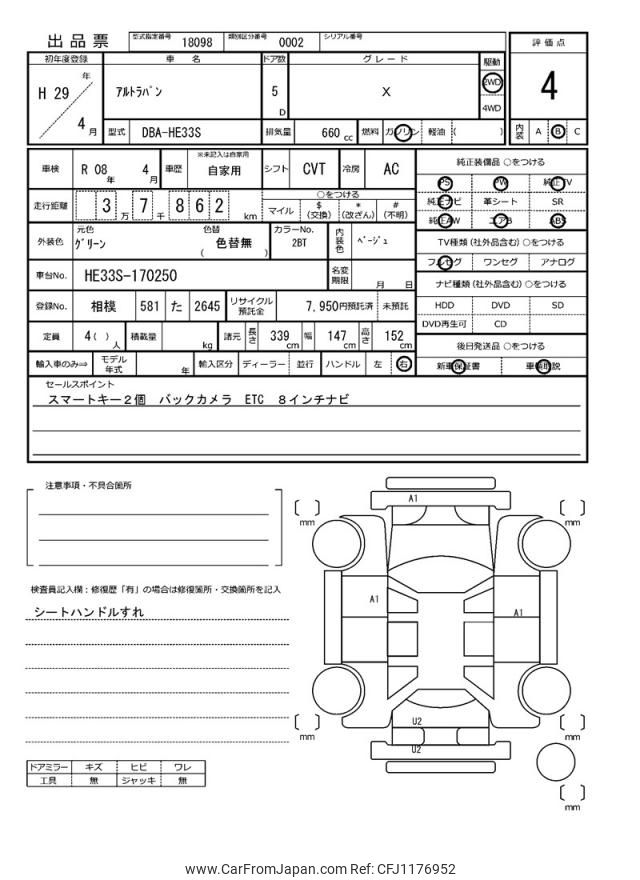 出品票 型式指定番号 18098 類別区分番号 0002 シリアル番号
初年度登録 車名 ドア数 グレード 駆動 評価点
H 29 年 4 月 アルトラパン 5 D X 2WD 4WD 4
型式 DBA-HE33S 排気量 660 cc 燃料 ガソリン 軽油 ( ) 内装 A B C
車検 R 08 年 4 月 車歴 ※未記入は自家用 自家用 シフト CVT 冷房 AC 純正装備品 ○をつける
PS PW 純正TV
走行距離 3 万 7 千 8 6 2 km ○をつける マイル $ (交換) * (改ざん) # (不明)
純正ナビ 革シート SR
純正AW エアB ABS
外装色 元色 グリーン 色替 色替無 ( ) カラーNo. 2BT 内装色 ベージュ
TV種類 (社外品含む) ○をつける
フルセグ ワンセグ アナログ
車台No. HE33S-170250 名変期限 月 日
ナビ種類 (社外品含む) ○をつける
登録No. 相模 581 た 2645 リサイクル預託金 7,950円預託済 未預託
HDD DVD SD
DVD再生可 CD
定員 4( ) 人 積載量 kg 諸元 長さ 339 cm 幅 147 cm 高さ 152 cm
後日発送品 ○をつける
輸入車のみ⇒ モデル年式 年 輸入区分 ディーラー 並行 ハンドル 左 右
新車保証書 車輌取説
セールスポイント
スマートキー2個 バックカメラ ETC 8インチナビ
注意事項・不具合箇所
検査員記入欄：修復歴「有」の場合は修復箇所・交換箇所を記入
シートハンドルすれ
ドアミラー キズ ヒビ ワレ
工具 無 ジャッキ 無
A1
mm
mm
A1
A1
U2
U2
mm
mm
mm
www.CarFromJapan.com Ref: CFJ1176952